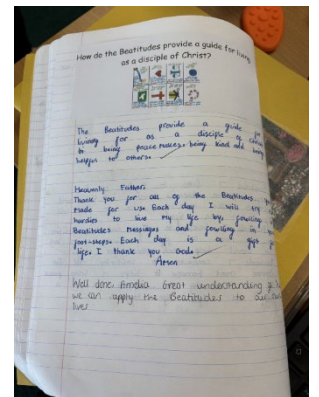 How do the Beatitudes provide a guide for living
as a disciple of Christ?
The Beatitudes provide a guide for
living for as a disciple of Christ
by being peacemakes. being kind and being
helpful to others.
Heavenly Father,
Thank you for all of the Beatitudes you
Made for us. Each day I will try my
hardies to live my life by, fowlling
Beatitudes messages and fowlling in your
foot-steps. Each day is a gift
life. I thank you
Amen
Well done, Amelia Great understanding
we can apply the Beatitudes to our
lives